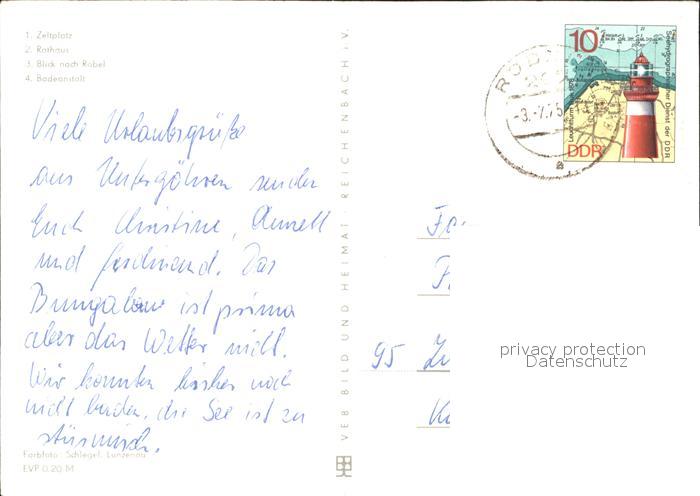 1. Zeltplatz
2. Rathaus
3. Blick nach Röbel
4. Badeanstalt
Viele Urlaubsgrüße
aus Untergöhren senden
Euch Christine, Annett
und Ferdinand. Das
Bungalow ist prima
aber das Wetter nicht.
Wir konnten bisher noch
nicht baden, die See ist zu
stürmisch.
Farbfoto: Schlegel, Lunzenau
EVP 0,20 M
VEB BILD UND HEIMAT REICHENBACH i.V.
RÖB
-3.-7.75
a
10
Seehydrographischer Dienst der DDR
DDR
95
privacy protection
Datenschutz